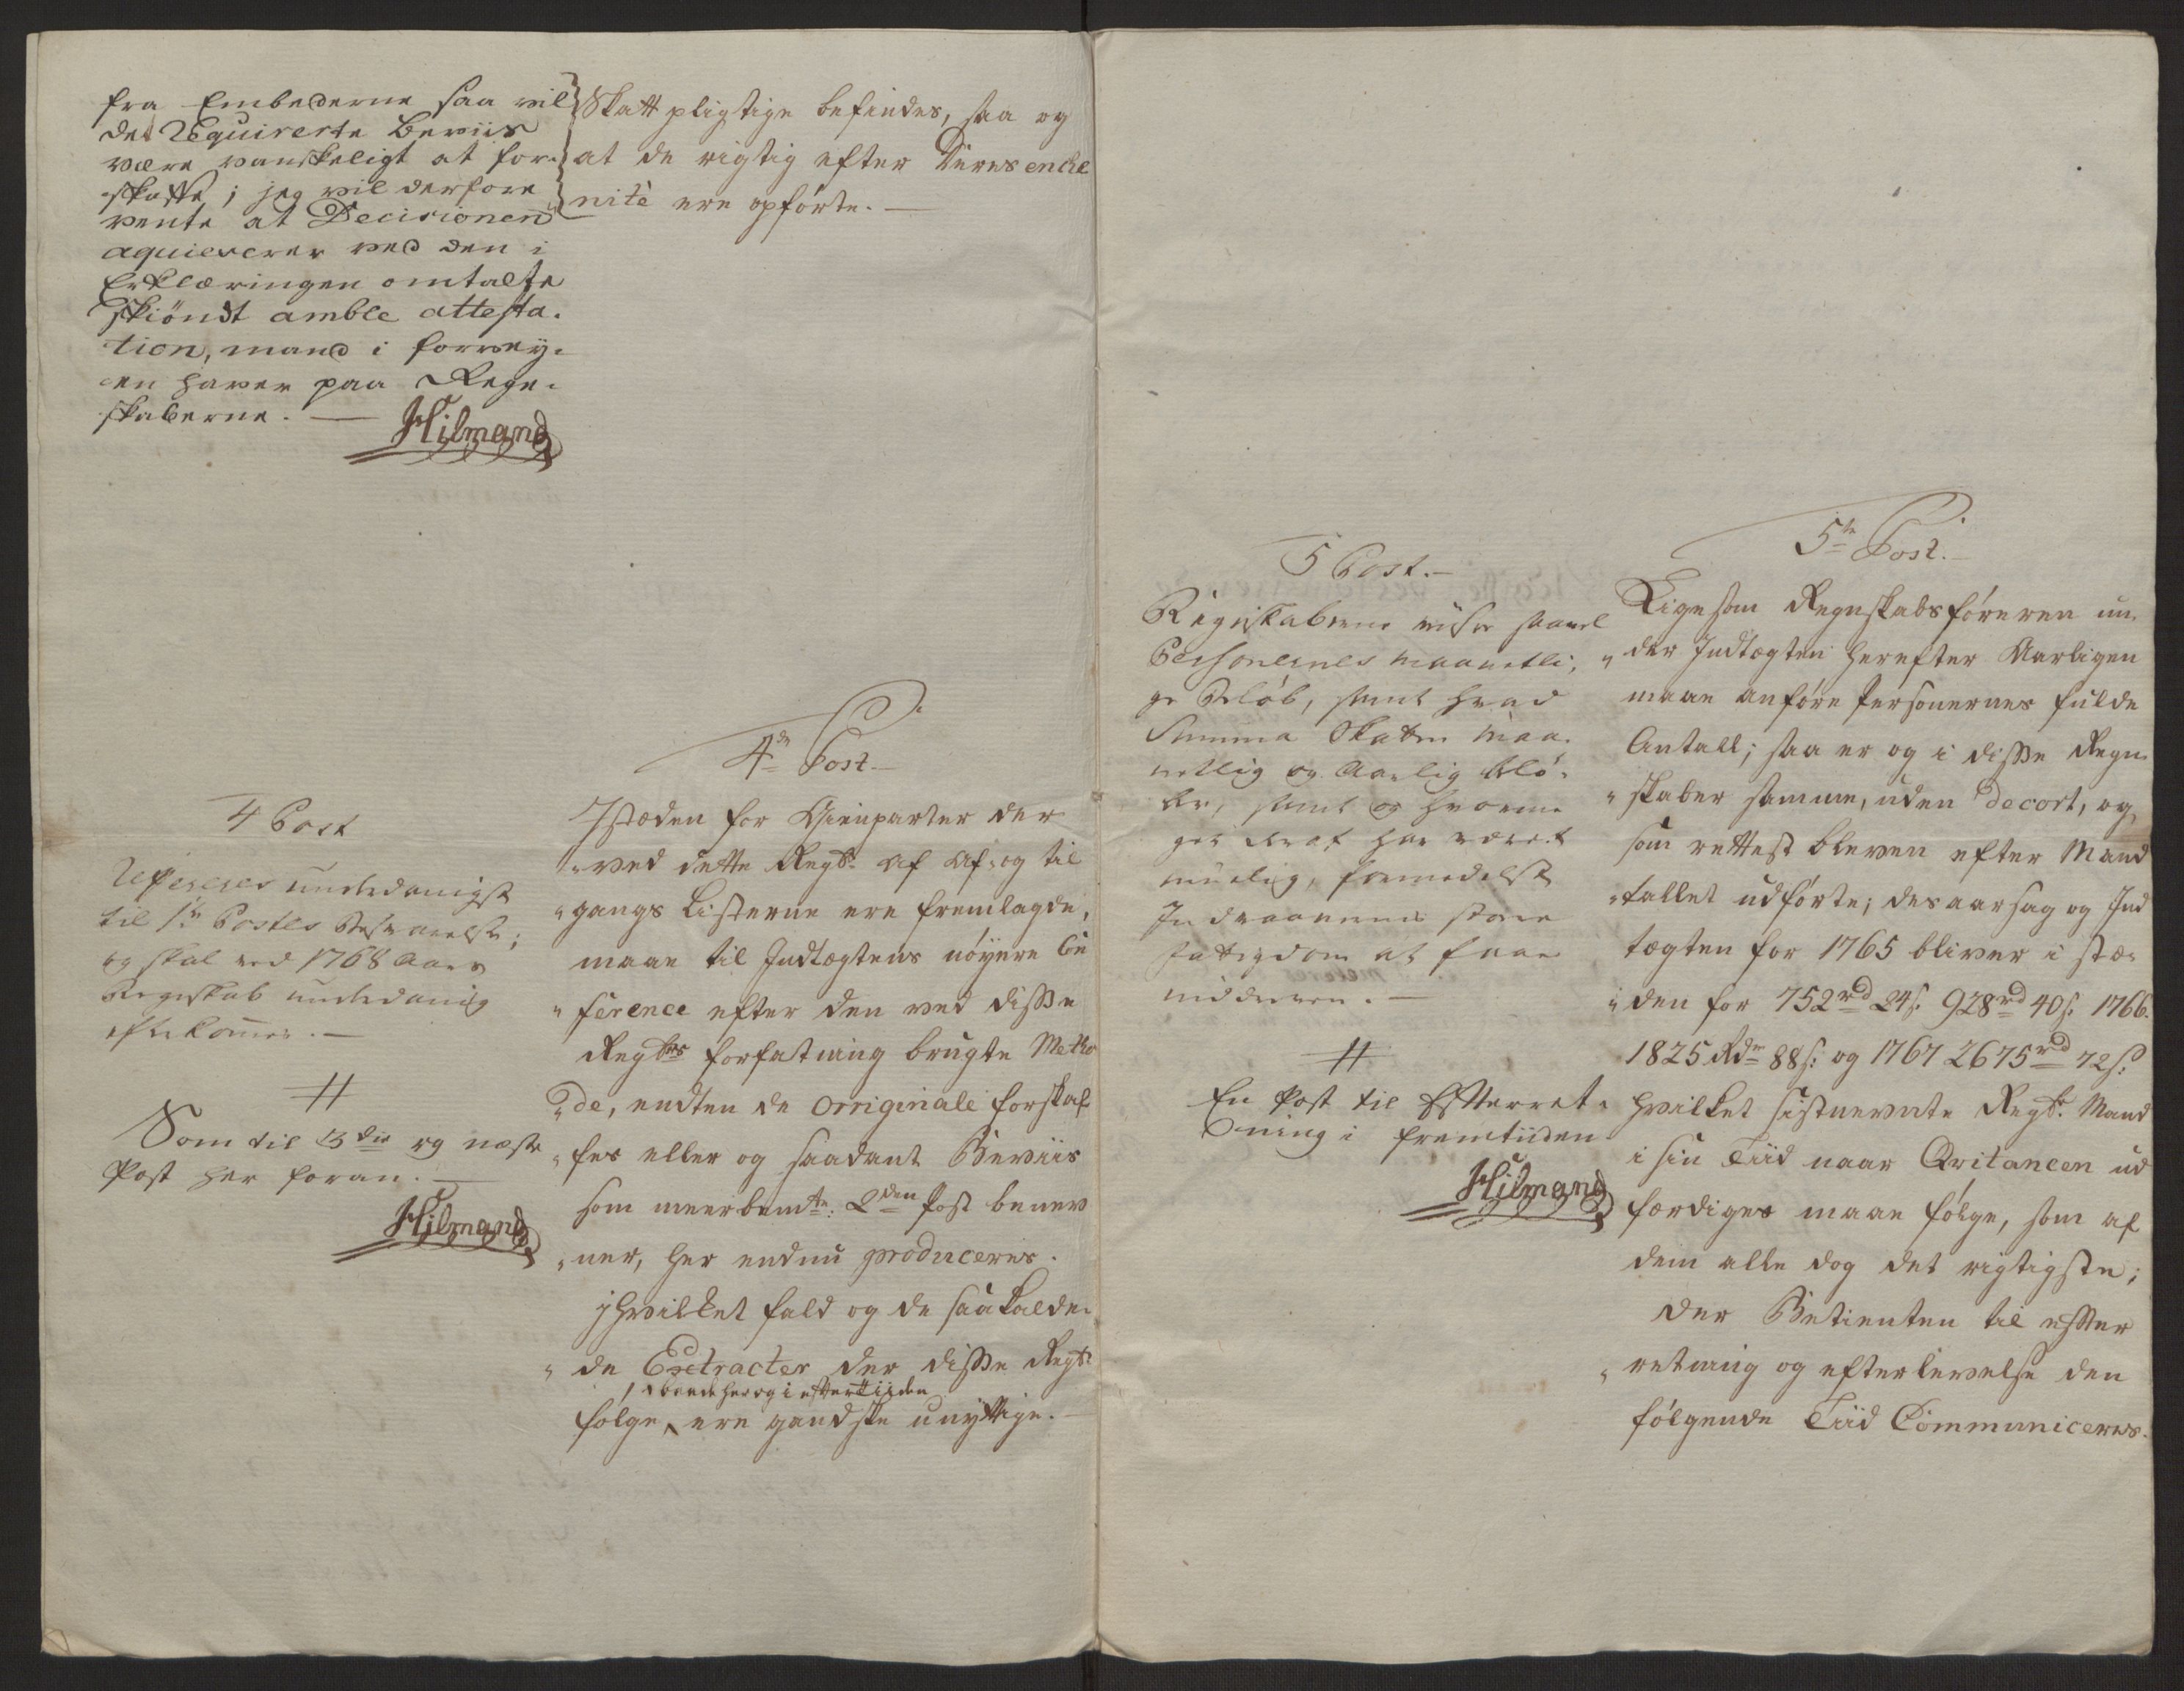 fra Embederne saa vil
det Requirerte Beviis
være vanskeligt at for-
skaffe; jeg vil derfore
vente at Decisionen
aquiescerer ved den i
Erklæringen omtalte
skiöndt amble attesta-
tion, mand i forvey-
en haver paa Regn-
skaberne. —
Hilmand
Skatt pligtige befindes, saa og
at de rigtig efter Deres endel
nitè ere opförte. —
4 Post
Refereres underdanigst
til 1ste Postes Besvarelse;
og skal ved 1768 Aars
Regnskab underdanig
efterkommes. —
#
Som til 3die og næste
Post her foran. —
Hilmand
4de Post —
Istæden for Gienparter der
"ved dette Regsk: af Af- og til
"gangs Listerne ere fremlagde,
maae til Indtægtens nöyere Con
"ference efter den ved disse
Regsk:rs forfatning brugte Metho
"de, endten de originale forskaf
"fes eller og saadant Beviis
som meerbemte: 2den Post benev
"ner, her endnu produceres.
I hvilket fald og de saa kalde-
"de Extracter der disse Regsk:
folge, baade her og i eftertiiden
ere gandske unyttige. —
5 Post. —
Regnskaberne viser saavel
Personernes maanetli-
ge Belöb, samt hvad
Summa Skatten maa-
netlig og Aarlig belö-
ber, samt og hvor me
get deraf har været
muelig, formedelst
Indvaanernes store
Fattigdom at faae
inddreven. —
#
En Post til Efterret-
ning i fremtiiden
Hilmand
5te Post. —
Ligesom Regnskabsföreren un-
"der Indtægten herefter Aarligen
maae anföre Personernes fulde
Antall; saa er og i disse Regn-
"skaber samme, uden decort, og
som rettest bleven efter Mand
"tallet udförte; des aarsag og Ind
tægten for 1765 bliver i stæ-
"den for 752rd 24s: 928rd 40s: 1766.
1825 Rdr 88s: og 1767 2675rd 72s:
hvilket sistnevnte Regsk: Mand
i sin Tiid naar Qvitancen ud
færdiges maae fölge, som af
dem alle dog det rigtigste;
der Betienten til efter
"retning og efterlevelse den
fölgende Tiid Communiceres.